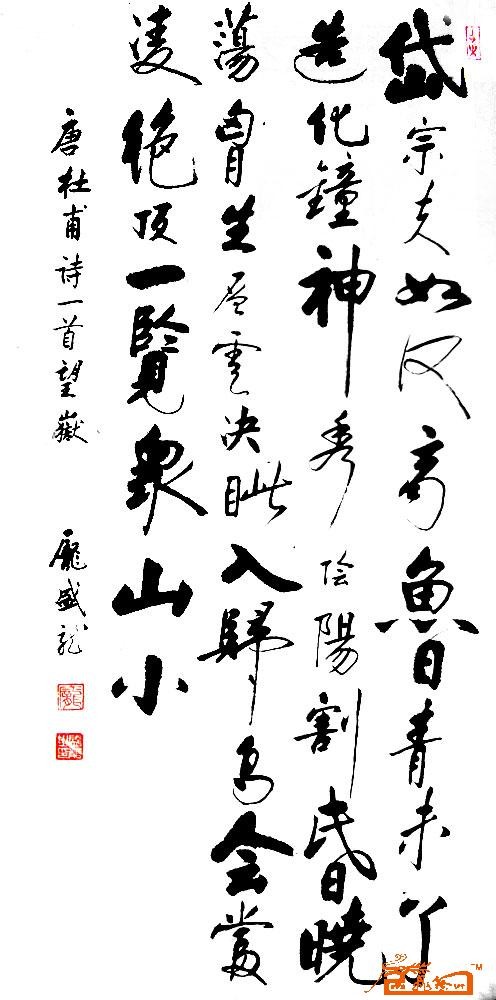 岱宗夫如何齊魯青未了
造化鐘神秀陰陽割昏曉
蕩胷生层雲決眦入歸鳥会當
凌絶顶一覽衆山小
唐杜甫诗一首望嶽 龐盛龍